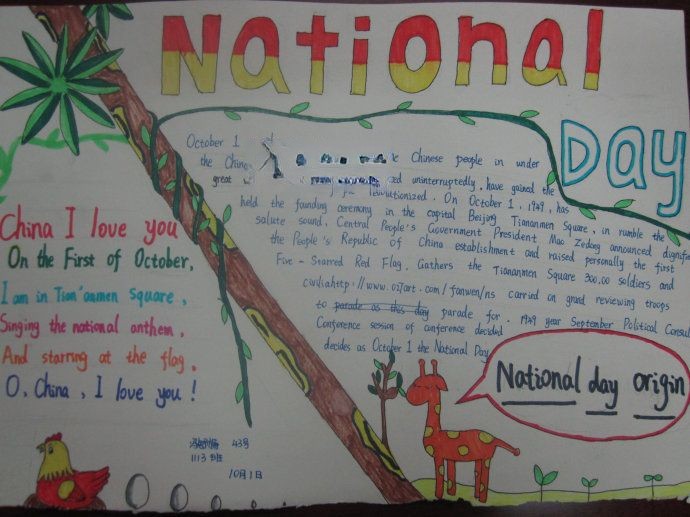 National
Day
October 1
the Chinese people in under
great uninterruptedly, have gained the
revolutionized. On October 1, 1949, has
held the founding ceremony in the capital Beijing Tiananmen Square, in rumble the
salute sound, Central People's Government President Mao Zedong announced dignifin
the People's Republic of China establishment and raised personally the first
Five-Starred Red Flag, Gathers the Tiananmen Square 300.00 soldiers and
carried on grand reviewing troops
to parade as this day parade for. 1949 year September Political Consul
Conference session of conference decided
decides as October 1 the National Day
China I love you
On the First of October,
I am in Tian'anmen Square,
Singing the national anthem,
And starring at the flag,
O, China, I love you!
National day origin
43号
1113班
10月1日